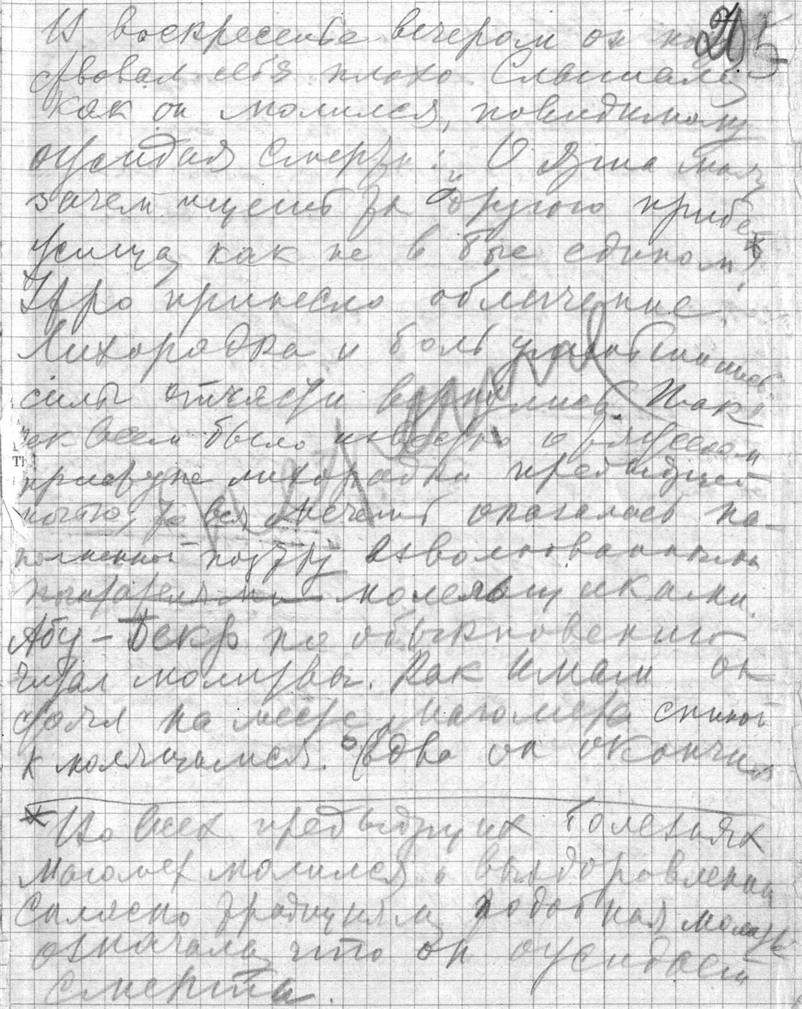 25
И воскресенье вечером он
ствовал себя плохо Слышали
как он молился, повидимому
ожидая смерти: „О душа моя,
зачем ищешь ты другого прибе
жища, как не в боге едином"*
Утро принесло облегчение.
Лихорадка и боль уменьшились
силы отчасти вернулись. Так
как всем было известно о
приступе лихорадки предыдущей
ночью, то вся мечеть оказалась на-
полненной поутру взволнованными
молельщиками.
Абу-Бекр по обыкновению
читал молитвы. Как имам он
стоял на месте Магомета спиной
к молящимся. Едва он окончил
* Во всех предыдущих болезнях
Магомет молился о выздоровлении
Согласно традициям, подобная молитва
означала, что он ожидает
смерти.